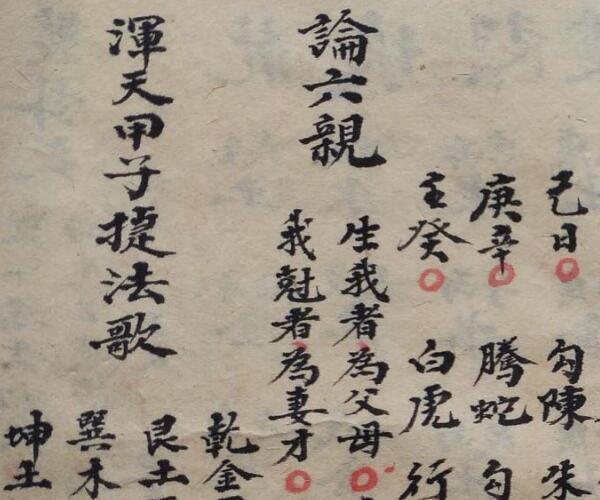 己日 勾陳 朱
庚辛 騰蛇 勾
壬癸 白虎 行
論六親
生我者為父母
我尅者為妻才
渾天甲子捷法歌
乾金
艮土
巽木
坤土